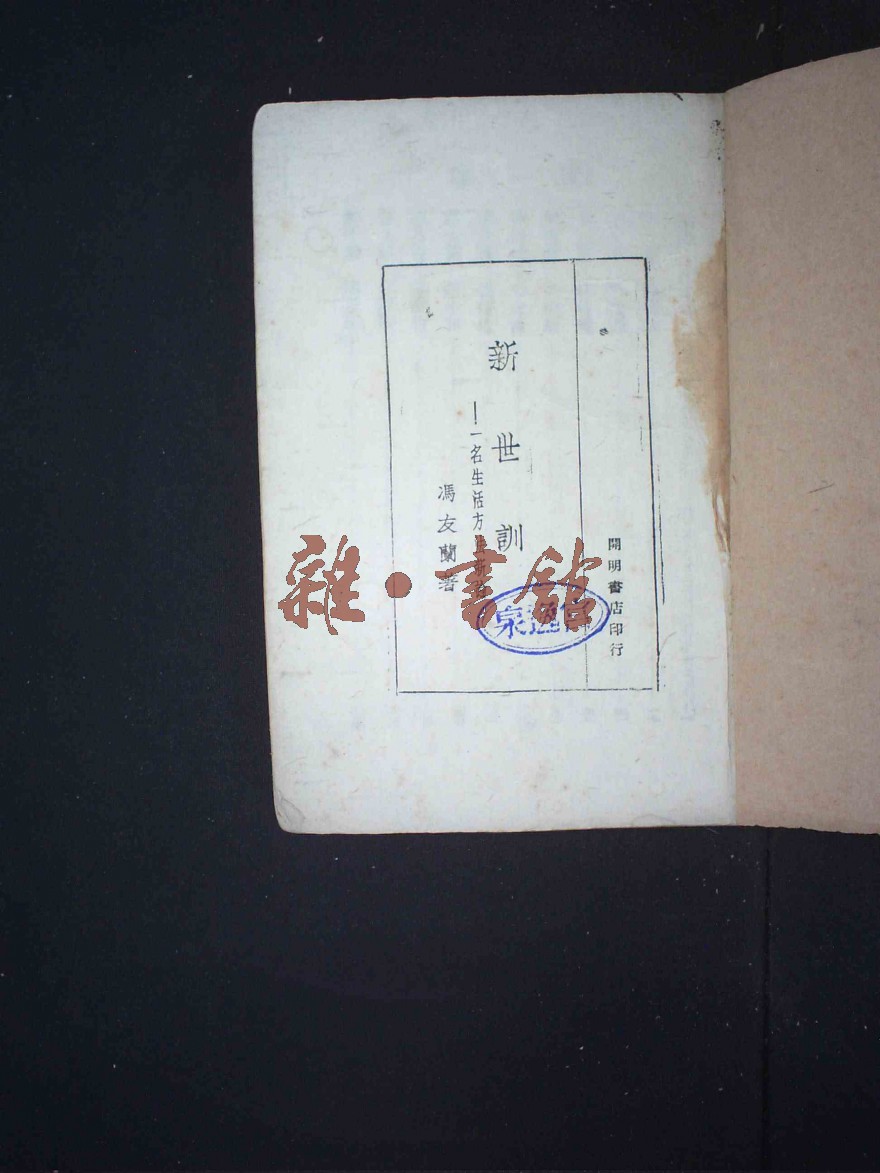 開明書店印行
新世訓
—一名生活方法新論
馮友蘭著
雜·書館